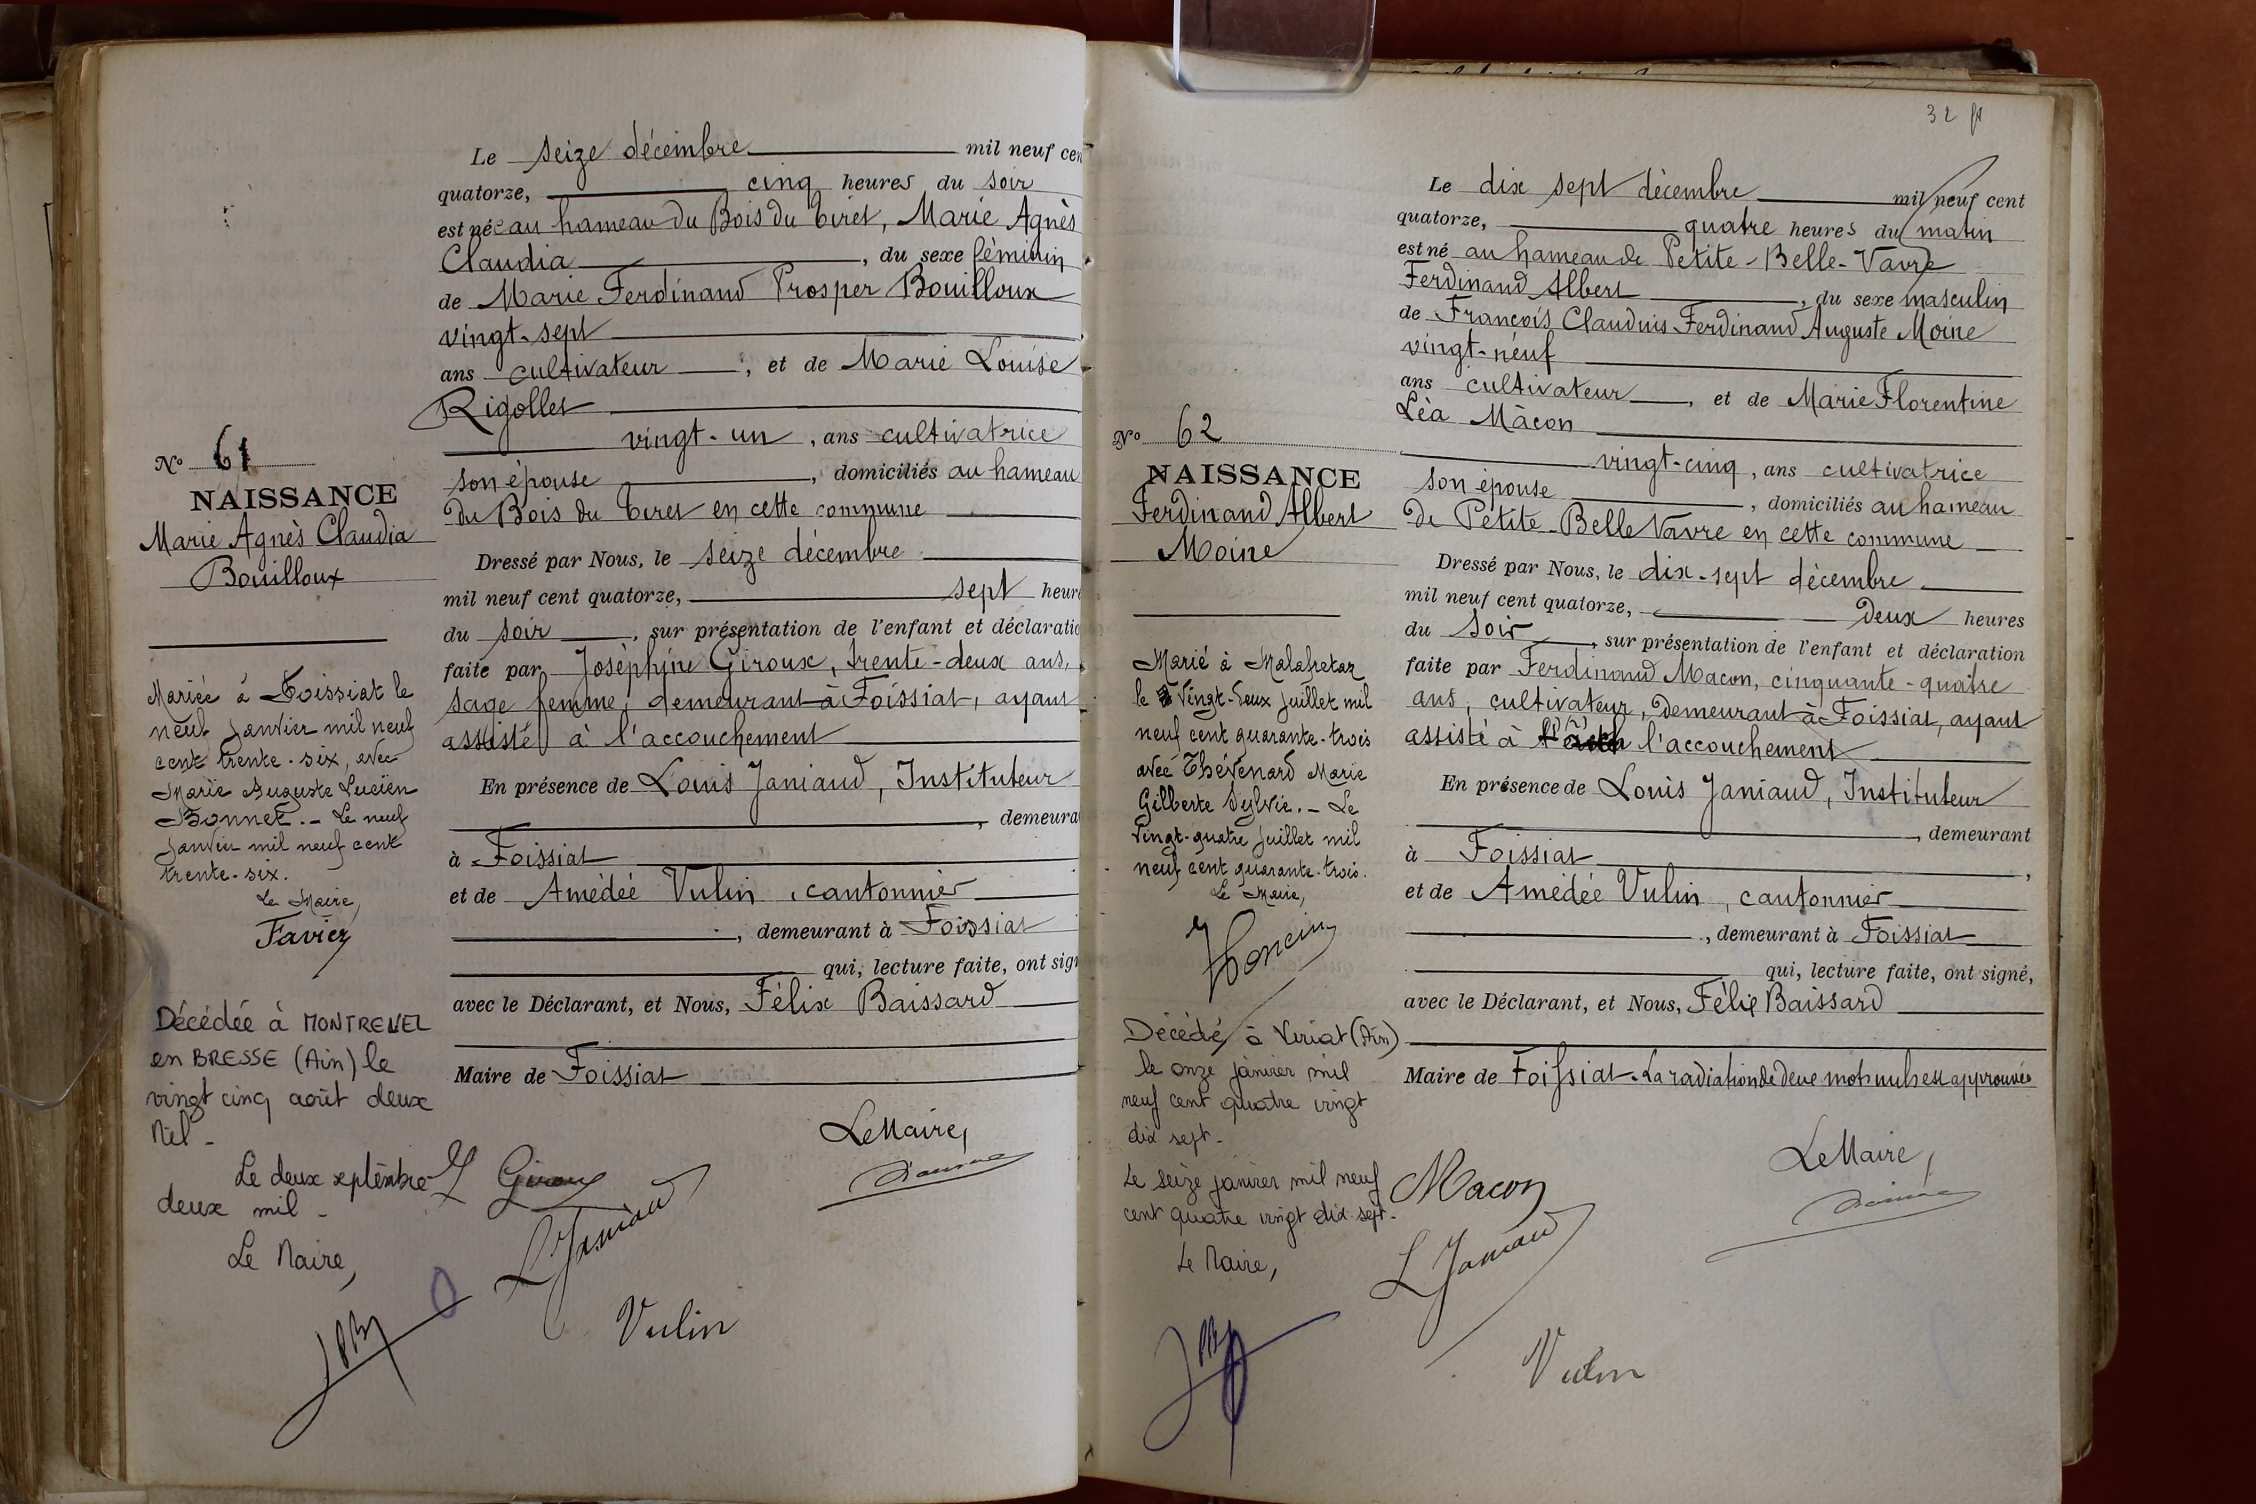 Le seize décembre mil neuf cen
quatorze, cinq heures du soir
est née au hameau du Bois du Tiret, Marie Agnès
Claudia, du sexe féminin
de Marie Ferdinand Prosper Bouilloux
vingt-sept
ans cultivateur, et de Marie Louise
Rigollet
vingt-un, ans cultivatrice
son épouse, domiciliés au hameau
du Bois du Tiret en cette commune
Dressé par Nous, le seize décembre
mil neuf cent quatorze, sept heure
du soir, sur présentation de l'enfant et déclaratio
faite par Joséphine Giroux, trente-deux ans,
sage femme, demeurant à Foissiat, ayant
assisté à l'accouchement
En présence de Louis Janiaud, Instituteur
, demeura
à Foissiat
et de Amédée Vulin, cantonnier
, demeurant à Foissiat
qui, lecture faite, ont sign
avec le Déclarant, et Nous, Félix Baissard
Maire de Foissiat
Le Maire,
Giroux
L Janiaud
Vulin
No 61
NAISSANCE
Marie Agnès Claudia
Bouilloux
Mariée à Foissiat le
neuf Janvier mil neuf
cent trente-six, avec
Marie Auguste Lucien
Bonnet.- Le neuf
Janvier mil neuf cent
trente-six.
Le Maire,
Favier
Décédée à MONTREVEL
en BRESSE (Ain) le
vingt cinq août deux
Mil -
Le deux septembre
deux mil -
Le Maire,
32
Le dix sept décembre mil neuf cent
quatorze, quatre heures du matin
est né au hameau de Petite-Belle-Vavre
Ferdinand Albert, du sexe masculin
de François Claudius Ferdinand Auguste Moine
vingt-neuf
ans cultivateur, et de Marie Florentine
Léa Mâcon
vingt-cinq, ans cultivatrice
son épouse, domiciliés au hameau
de Petite-Belle Vavre en cette commune
Dressé par Nous, le dix-sept décembre
mil neuf cent quatorze, deux heures
du soir, sur présentation de l'enfant et déclaration
faite par Ferdinand Macon, cinquante-quatre
ans, cultivateur, demeurant à Foissiat, ayant
assisté à l'accouchement
En présence de Louis Janiaud, Instituteur
, demeurant
à Foissiat,
et de Amédée Vulin, cantonnier
, demeurant à Foissiat
qui, lecture faite, ont signé,
avec le Déclarant, et Nous, Félix Baissard
Maire de Foissiat. La radiation de deux mots nuls est approuvée
Le Maire,
Macon
L Janiaud
Vulin
No 62
NAISSANCE
Ferdinand Albert
Moine
Marié à Malafretaz
le Vingt-deux Juillet mil
neuf cent quarante-trois
avec Thévenard Marie
Gilberte Sylvie.- Le
Vingt-quatre Juillet mil
neuf cent quarante-trois.
Le Maire,
Décédé à Viriat (Ain)
le onze janvier mil
neuf cent quatre vingt
dix sept -
Le seize janvier mil neuf
cent quatre vingt dix sept -
Le Maire,